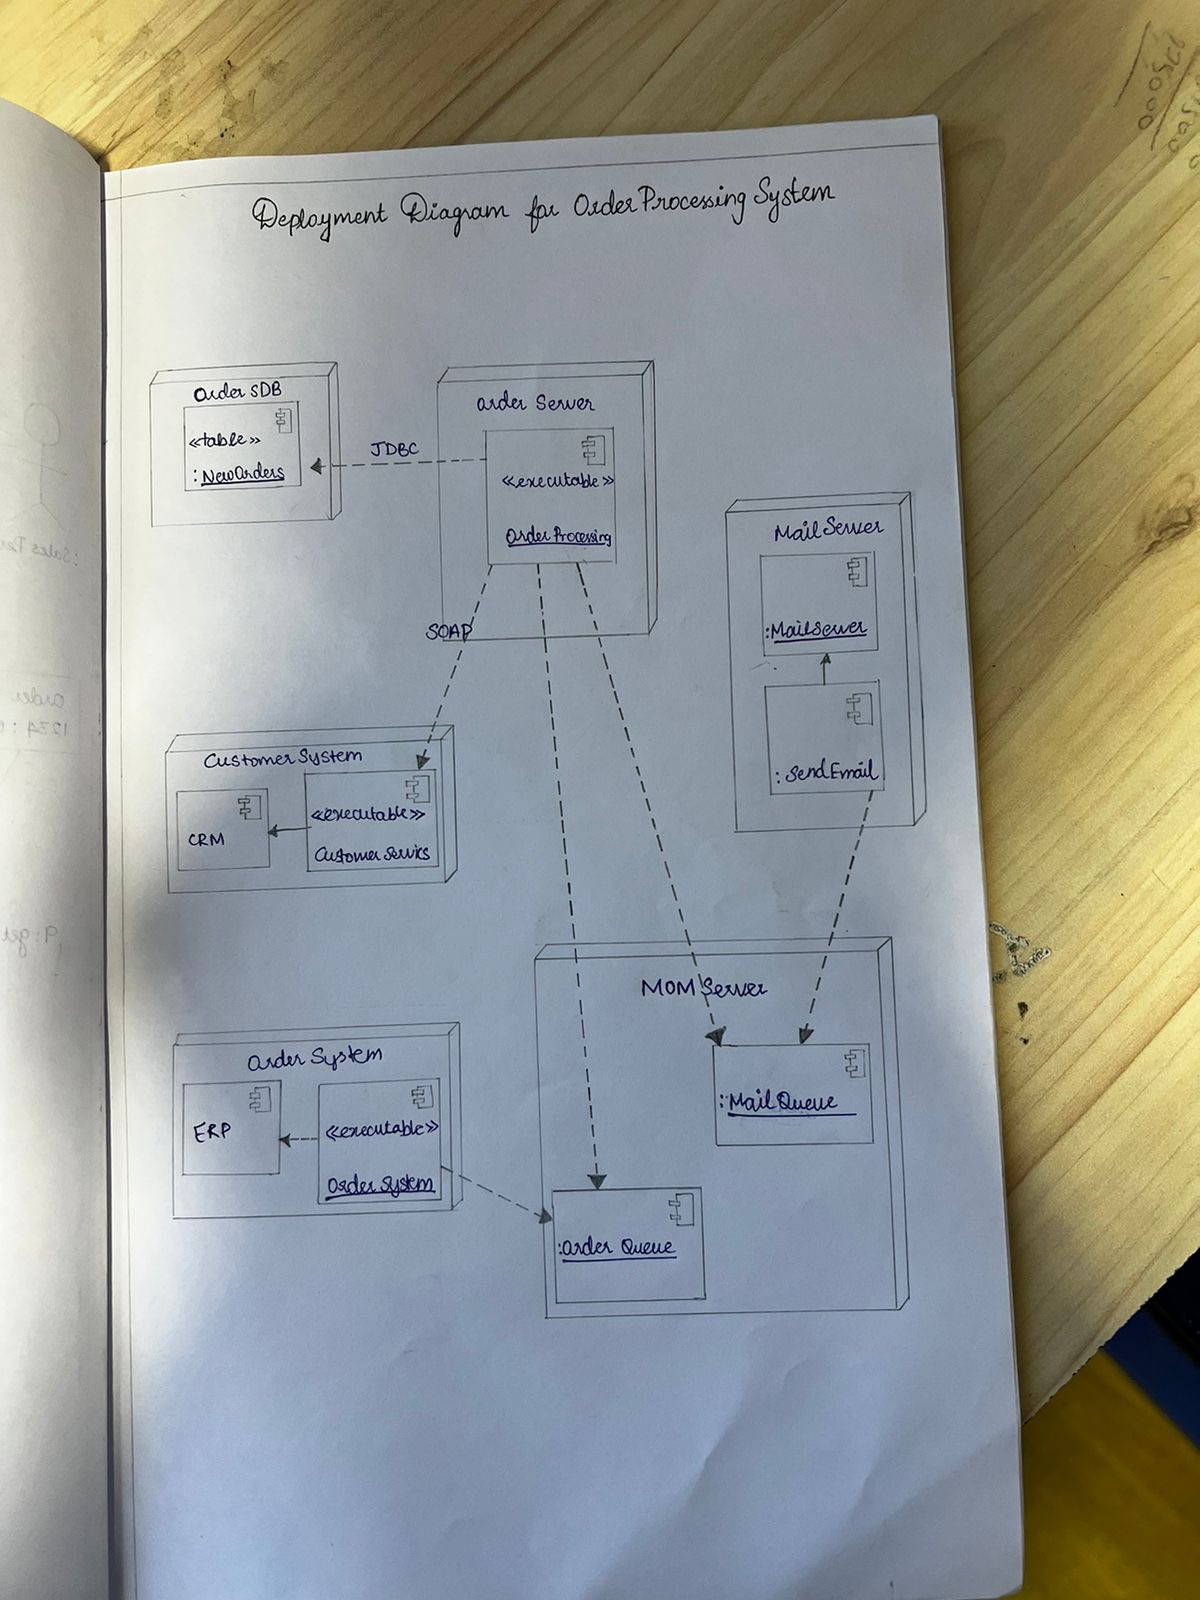 Deployment Diagram for Order Processing System
Order SDB
<<table>>
: NewOrders
JDBC
Order Server
<<executable>>
Order Processing
SOAP
Mail Server
:MailServer
: SendEmail
Customer System
CRM
<<executable>>
Customer Servics
MOM Server
:Mail Queue
:Order Queue
Order System
ERP
<<executable>>
Order System